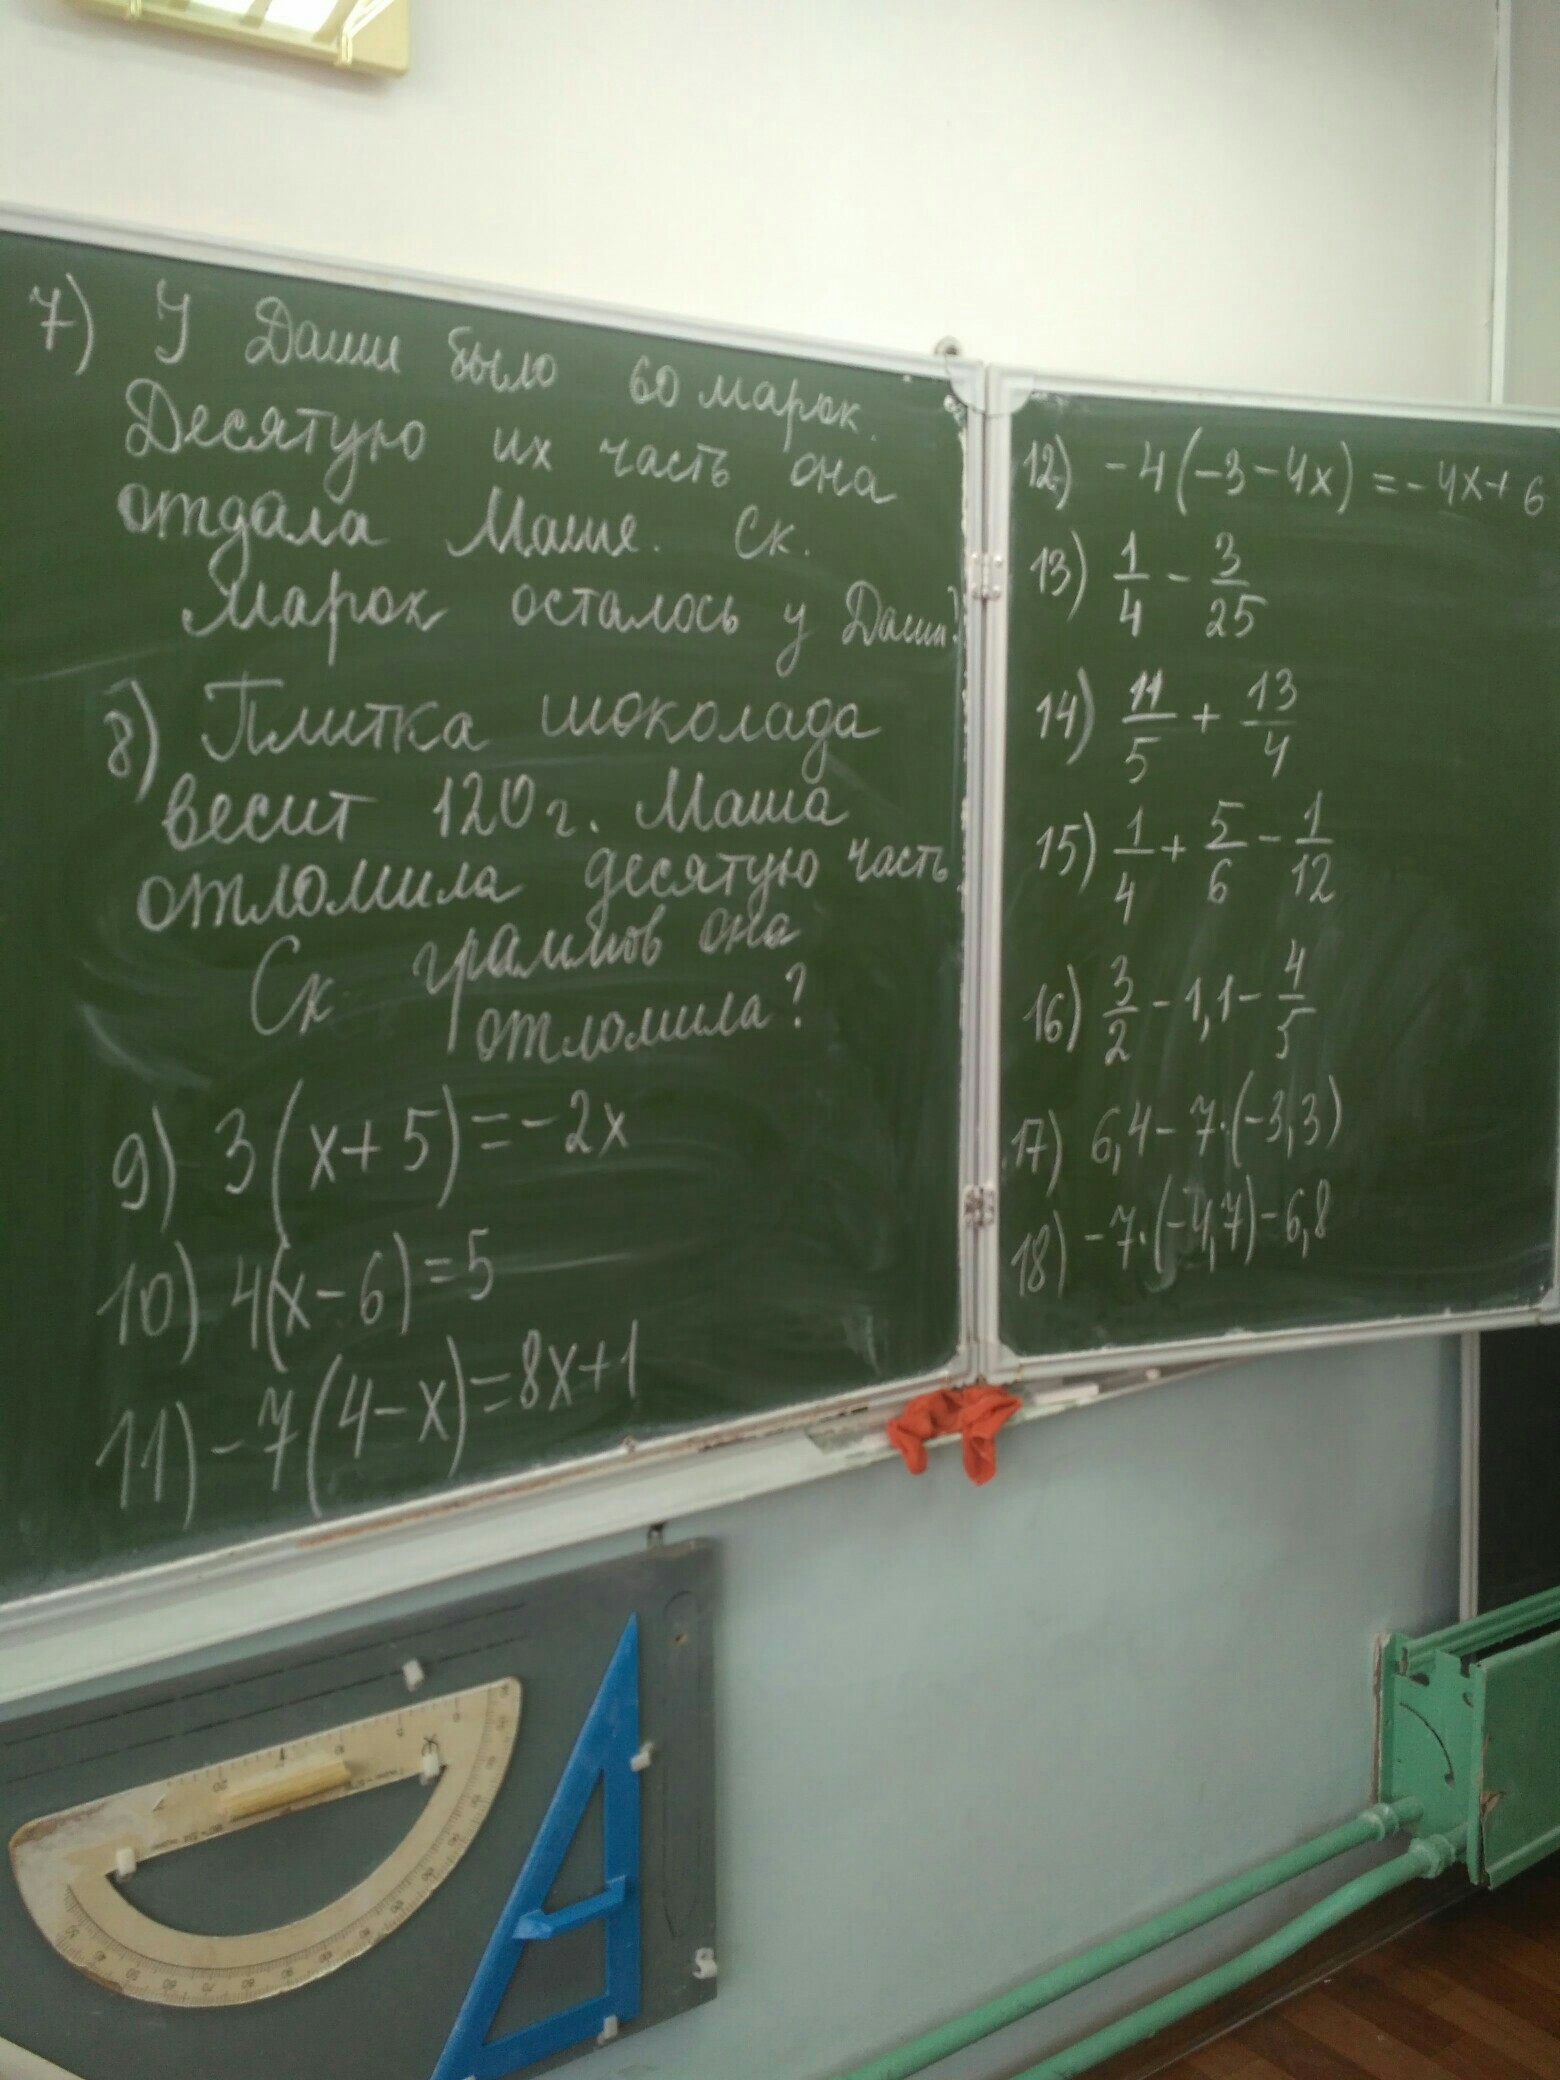 7) У Даши было 60 марок.
Десятую их часть она
отдала Маше. Ск.
марок осталось у Даши?
8) Плитка шоколада
весит 120 г. Маша
отломила десятую часть.
Ск. граммов она
отломила?
9) 3(x+5)=-2x
10) 4(x-6)=5
11) -7(4-x)=8x+1
12) -4(-3-4x)=-4x+6
13) 1/4 - 3/25
14) 11/5 + 13/4
15) 1/4 + 5/6 - 1/12
16) 3/2 - 1,1 - 4/5
17) 6,4-7·(-3,3)
18) -7·(-4,7)-6,8